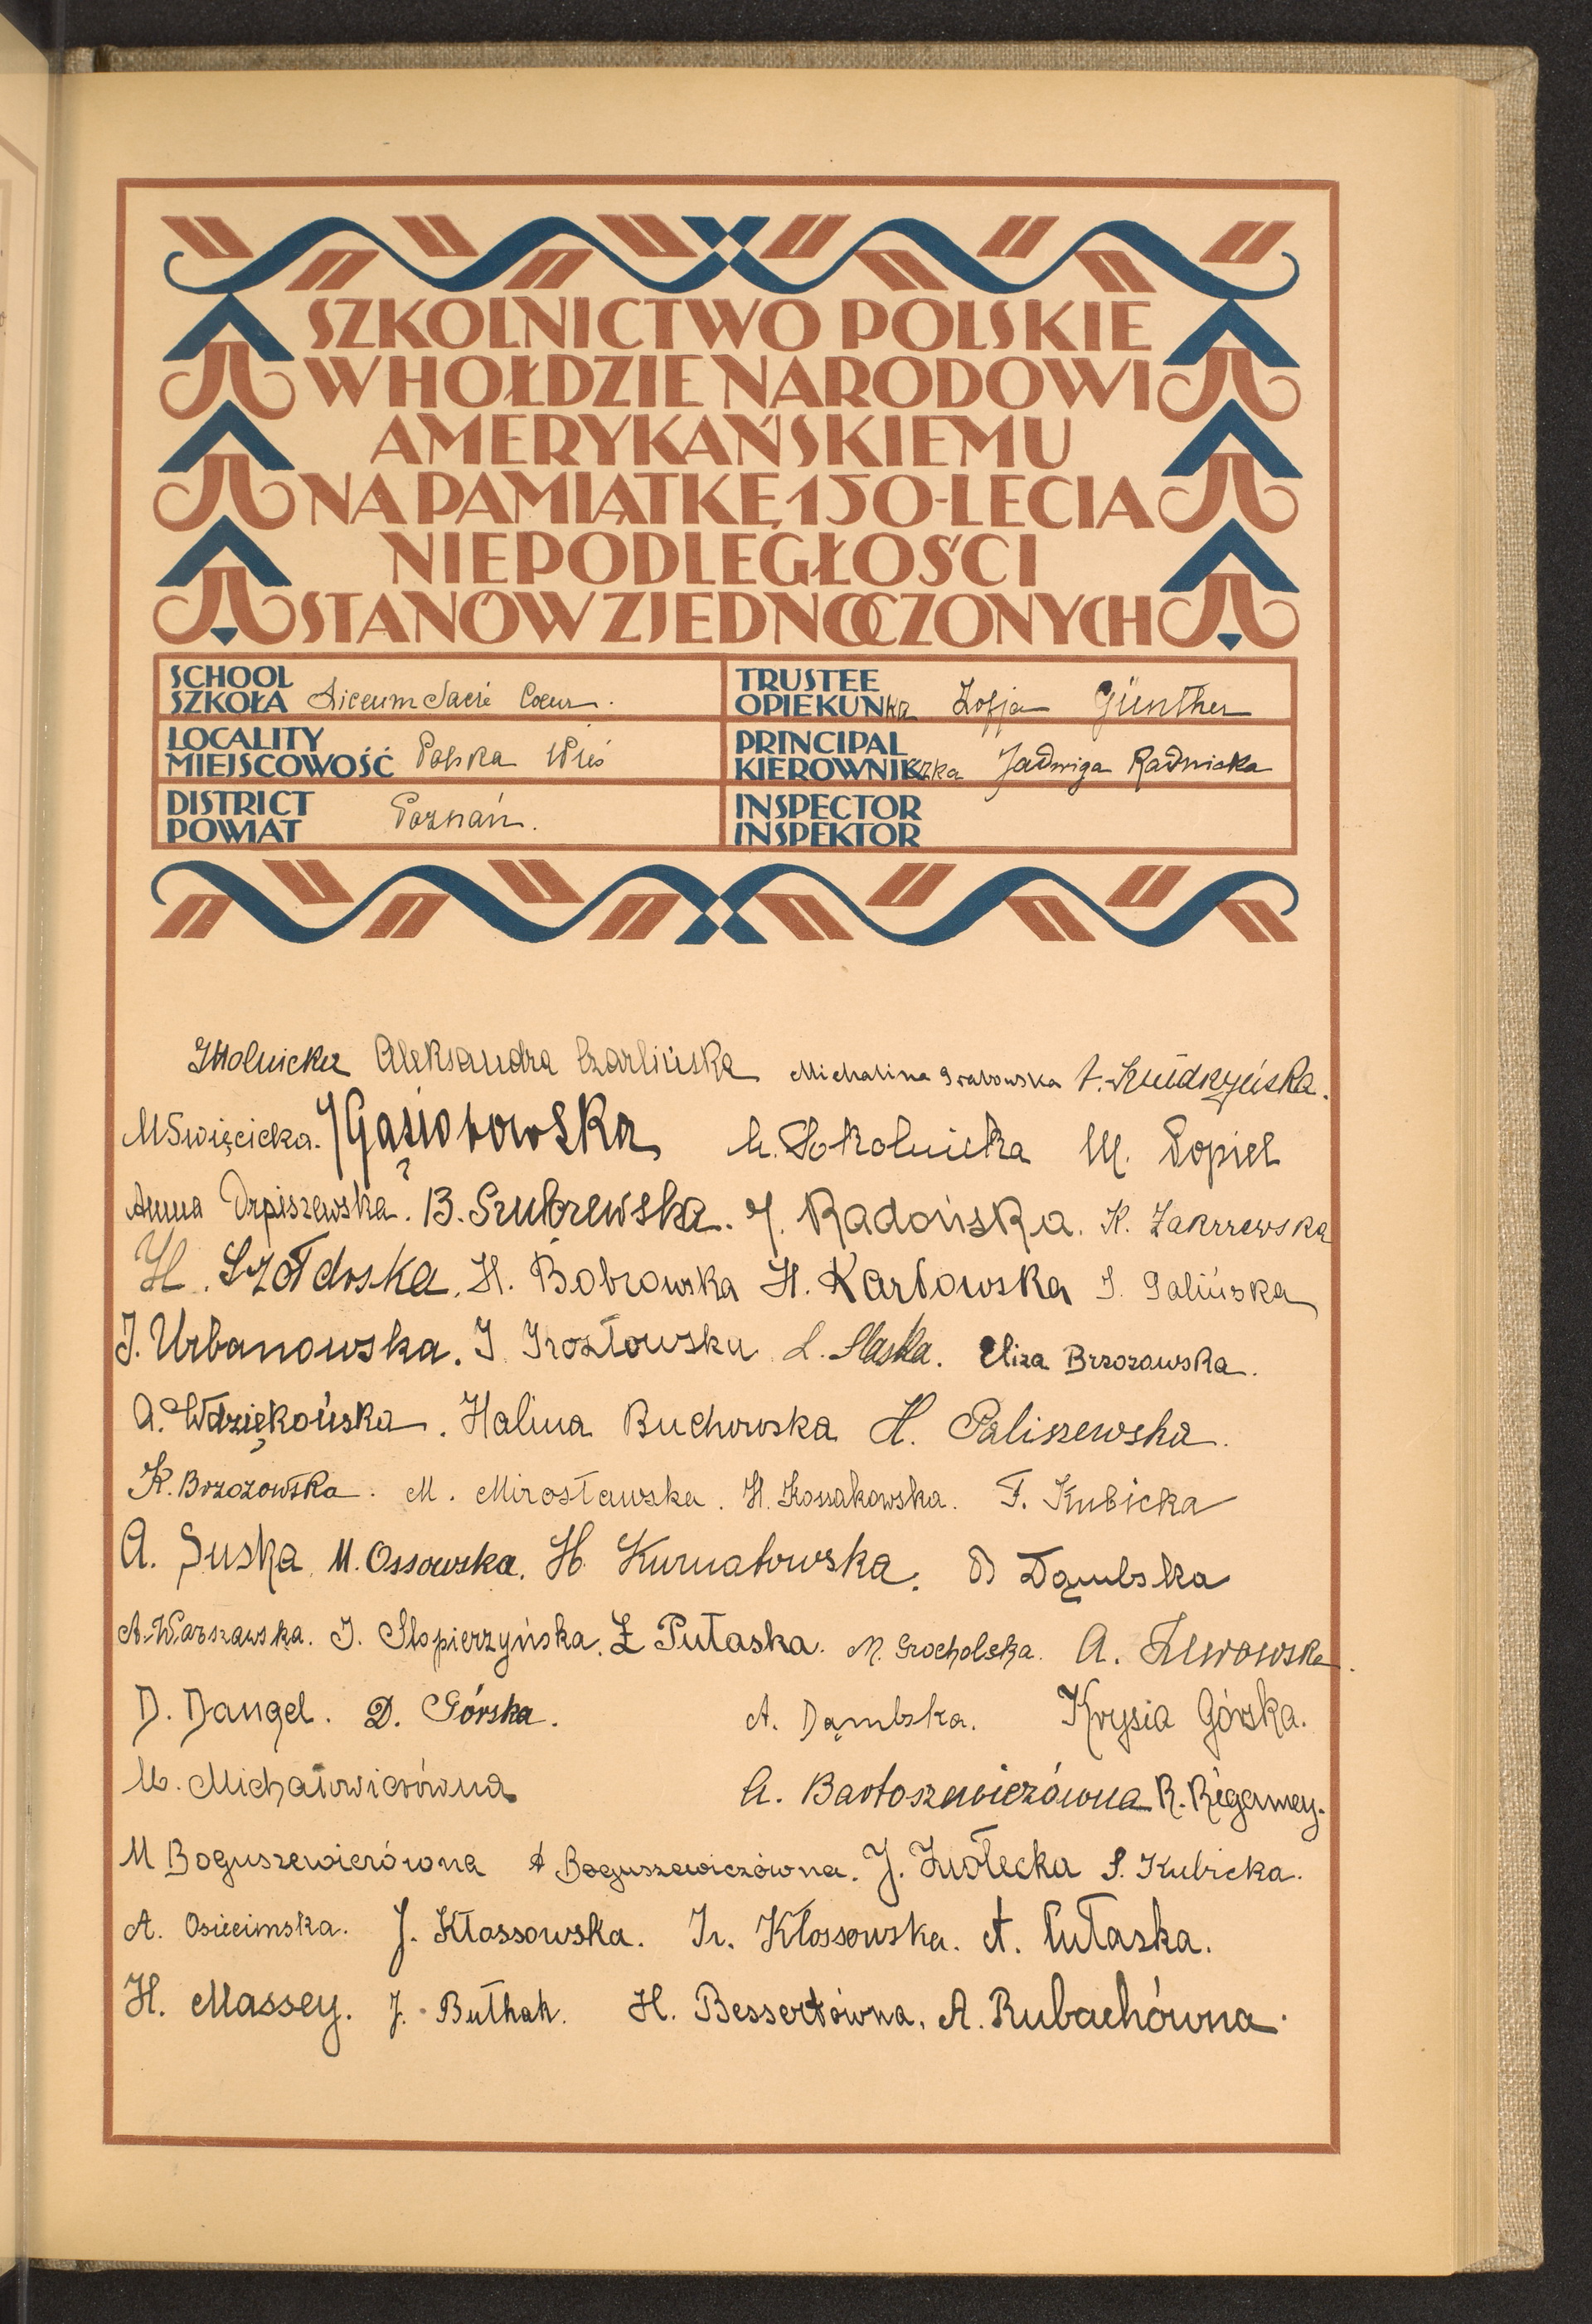 SZKOLNICTWO POLSKIE
W HOŁDZIE NARODOWI
AMERYKAŃSKIEMU
NA PAMIĄTKĘ 150-LECIA
NIEPODLEGŁOŚCI
STANÓW ZJEDNOCZONYCH
SCHOOL
SZKOŁA Liceum Sacré Coeur.
TRUSTEE
OPIEKUNka Zofja Günther
LOCALITY
MIEJSCOWOŚĆ Polska Wieś
PRINCIPAL
KIEROWNIczka Jadwiga Radnicka
DISTRICT
POWIAT Poznań.
INSPECTOR
INSPEKTOR
Aleksandra Czarlińska Michalina Grabowska
M Święcicka. J Gąsiorowska A. Sokolnicka M. Popiel
Anna Drpiszewska. B. Szubrewska. J. Radońska. K. Zakrzewska
H. Szołdrska. H. Bobrowska H. Karłowska J. Galińska
J. Urbanowska. J. L. Slaska. Eliza Brzozowska.
A. Wdziękońska. Halina Buchowska H. Paliszewska.
K. Brzozowska. M. Mirosławska. H. Kossakowska. F. Kubicka
A. Suska. M. Ossowska. H. Kurnatowska. Dąmbska
A. Warszawska. J. Słopierzyńska. Z Pułaska. M. Grocholska. A.
D. Dangel. D. Górska. A. Dąmbska. Krysia Górska.
M. Michałowiczówna A. Bartoszewiczówna R. Régamey.
M Boguszewiczówna A Boguszewiczówna. J. Ziołecka S. Kubicka.
A. Osiecimska. J. Kłossowska. Ir. Kłossowska. A. Pułaska.
H. Massey. J. Bułhak. H. Bessertówna. A. Rubachówna.